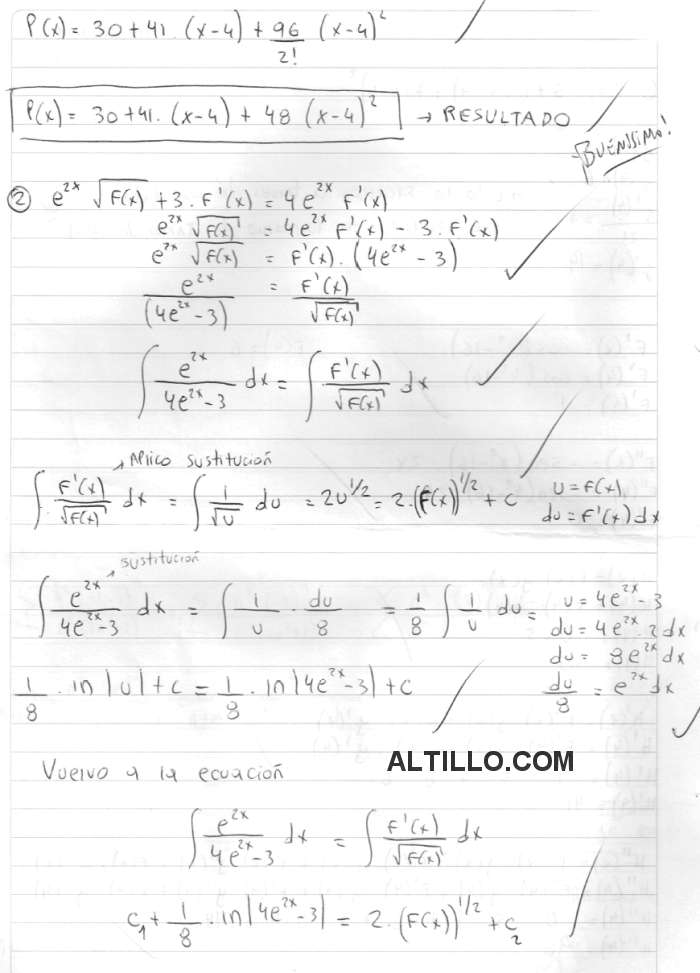 P(x) = 30 + 41 . (x-4) + 96/2! (x-4)²
P(x) = 30 + 41 . (x-4) + 48 (x-4)² → RESULTADO
BUENISSIMO!
② e^2x √F(x) + 3 . F'(x) = 4e^2x F'(x)
e^2x √F(x) = 4e^2x F'(x) - 3 . F'(x)
e^2x √F(x) = F'(x) . (4e^2x - 3)
e^2x/(4e^2x - 3) = F'(x)/√F(x)
∫ e^2x/4e^2x-3 dx = ∫ F'(x)/√F(x) dx
→ APlico sustitución
∫ F'(x)/√F(x) dx = ∫ 1/√u du = 2u^1/2 = 2.(F(x))^1/2 + c
u = F(x)
du = F'(x) dx
→ sustitución
∫ e^2x/4e^2x-3 dx = ∫ 1/u . du/8 = 1/8 ∫ 1/u du =
u = 4e^2x - 3
du = 4e^2x . 2 dx
du = 8e^2x dx
du/8 = e^2x dx
1/8 . ln |u| + c = 1/8 . ln |4e^2x - 3| + c
Vuelvo a la ecuación
ALTILLO.COM
∫ e^2x/4e^2x-3 dx = ∫ F'(x)/√F(x) dx
c₁ + 1/8 . ln |4e^2x - 3| = 2 . (F(x))^1/2 + c₂